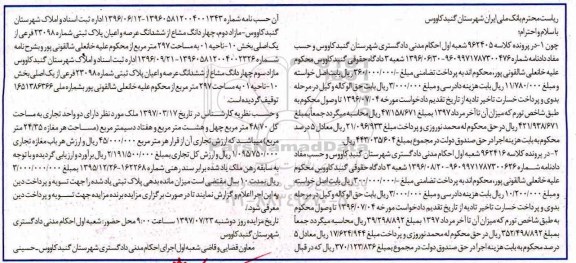 ریاست محترم بانک ملی ایران شهرستان گنبدکاووس
با سلام و احترام؛
چون ۱- در پرونده کلاسه ۹۶۲۴۰۵ شعبه اول احکام مدنی دادگستری شهرستان گنبدکاووس و حسب
مفاد دادنامه شماره ۹۶۰۹۹۷۱۷۸۷۳۰۰۴۷۶-۱۳۹۶/۰۶/۳۰ شعبه ۳ دادگاه حقوقی گنبدکاووس محکوم
علیه خانعلی شالقونی پور، محکوم اند به پرداخت تضامنی مبلغ ۳۶۰/۰۰۰/۰۰۰ ریال بابت اصل خواسته
و ۱۱/۷۸۰/۰۰۰ ریال بابت هزینه دادرسی و مبلغ ریال بابت حق الوکاله وکیل در مرحله
بدوی و پرداخت خسارت تاخیر تادیه از تاریخ تقدیم دادخواست مورخه ۱۳۹۶/۰۷/۰۴ تا وصول محکوم به
طبق شاخص تورم که میزان آن تا آخر مرداد ۱۳۹۷ بمبلغ ۴۷/۱۵۸/۶۷۱ ریال محاسبه میگردد جمعاً بمبلغ
۴۲۱/۹۳۸/۶۷۱ ریال در حق محکوم له محمد نوروزی و پرداخت مبلغ ۲۱/۰۹۶/۹۳۳ ریال معادل ۵ درصد
محکوم به بابت هزینه اجرا در حق صندوق دولت در مجموع بمبلغ ریال
۲- در پرونده کلاسه ۹۶۲۴۱۶ شعبه اول احکام مدنی دادگستری شهرستان گنبدکاووس و حسب مفاد
دادنامه شماره شعبه ۳ دادگاه حقوقی گنبدکاووس محکوم
علیه خانعلی شالقونی پور اند به پرداخت تضامنی مبلغ ۳۰۰/۰۰۰/۰۰۰ ریال بابت اصل خواسته
و مبلغ ریال بابت هزینه دادرسی و مبلغ ریال بابت حق الوکاله وکیل در مرحله
بدوی و پرداخت خسارت تاخیر تادیه از تاریخ تقدیم دادخواست مورخه ۱۳۹۶/۰۷/۰۴ تا وصول محکوم به
طبق شاخص تورم که میزان آن تا آخر مرداد ۱۳۹۷ بمبلغ ۳۹/۲۹۸/۸۹۲ ریال محاسبه میگردد جمعاً
بمبلغ ۳۵۲/۴۹۸/۸۹۲ ریال در حق محکوم له محمد نوروزی و پرداخت مبلغ ۱۷/۶۲۴/۹۴۴ ریال معادل ۵
درصد محکوم به بابت هزینه اجرا در حق صندوق دولت در مجموع بمبلغ ۳۷۰/۱۲۳/۸۳۶ ریال که در قبال
آن حسب نامه شماره ۱۳۹۶۰۵۸۱۲۰۰۴۰۰۱۳۴۳-۱۳۹۶/۰۶/۱۲ اداره ثبت اسناد و املاک شهرستان
گنبدکاووس- مازاد دوم، چهار دانگ مشاع از ششدانگ عرصه و اعیان پلاک ثبتی شماره ۲۳۰۹۸ فرعی از
یک اصلی بخش ۱۰- ناحیه ۰۱ به مساحت ۲۹۷ متر مربع از محکوم علیه خانعلی شالقونی پور و بشرح نامه
شماره ۱۳۹۶۰۵۸۱۲۰۰۴۰۰۲۳۳۶-۱۳۹۶/۰۹/۲۱ اداره ثبت اسناد و املاک شهرستان گنبدکاووس
مازاد سوم چهار دانگ مشاع از ششدانگ عرصه و اعیان پلاک ثبتی شماره ۲۳۰۹۸ فرعی از یک اصلی بخش
۱۰- ناحیه ۰۱ به مساحت ۲۹۷ متر مربع از محکوم علیه خانعلی شالقونی پور، بمبلغ ۱۶۵۱۳۸۶۳۶۶
توقیف گردیده است.
و حسب نظریه کارشناس در تاریخ ۱۳۹۷/۰۳/۱۷ ملک مورد نظر دارای دو واحد تجاری به مساحت
کل ۴۸/۷۰ متر مربع چهل و هشت متر مربع و هفتاد دسیمتر مربع (مساحت هر مغازه ۲۴/۳۵ متر
مربع) میباشد که ارزش تجاری آن از قرار هر متر مربع ۴۵/۰۰۰/۰۰۰ ریال و ارزش هر باب مغازه تجاری
۱/۰۹۵/۷۵۰/۰۰۰ ریال و ارزش کل تجاری بمبلغ ۲/۱۹۱/۵۰۰/۰۰۰ ریال برآورد و ارزیابی گردیده و با توجه
به سابقه رهن ملک یاد شده برابر سند رهنی شماره ۱۶۲۲۶۸-۱۳۹۵/۱۲/۲۶ بمبلغ ۳/۰۰۰/۰۰۰/۰۰۰
ریال بمدت ۱۰ سال مقتضی است میزان مانده بدهی پلاک ثبتی یاد شده را جهت تسویه و پرداخت دین
به این اجرا گزارش نمایند تا در صورت برگزاری مزایده برنده مزایده جهت تسویه و پرداخت دین
معرفی شود/
تاریخ مزایده روز دوشنبه ۱۳۹۷/۰۷/۲۳ ساعت ۹:۰۰ محل حضور: شعبه اول احکام مدنی دادگستری
شهرستان گنبدکاووس
معاون قضایی و قاضی شعبه اول اجرای احکام مدنی دادگستری شهرستان گنبدکاووس- حسینی